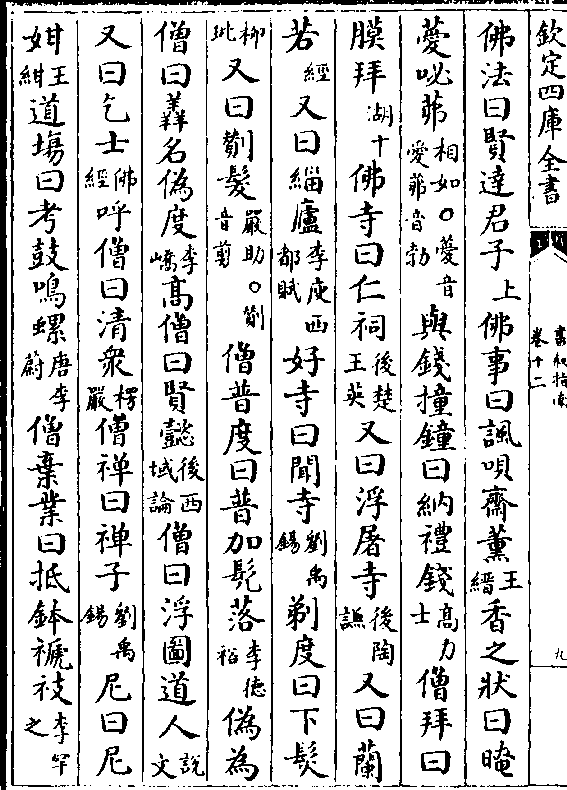 欽定四庫全書
卷十二
九
佛法曰賢達君子上佛事曰諷唄齋薰王縉香之狀曰晻
薆咇茀相如○薆音愛茀音勃與錢撞鐘曰納禮錢高力士僧拜曰
膜拜湖十佛寺曰仁祠後楚王英又曰浮屠寺後陶謙又曰蘭
若經又曰緇廬李庾西都賦好寺曰聞寺劉禹錫剃度曰下髮
柳玭又曰鬋髮嚴助○鬋音剪僧普度曰普加髡落李德裕偽為
僧曰羛名偽度李嶠高僧曰賢懿後西域論僧曰浮圖道人說文
又曰乞士佛經呼僧曰清衆楞嚴僧禅曰禅子劉禹錫尼曰尼
㚰王紺道塲曰考鼓鳴螺唐李蔚僧棄業曰抵鉢褫衼李罕之